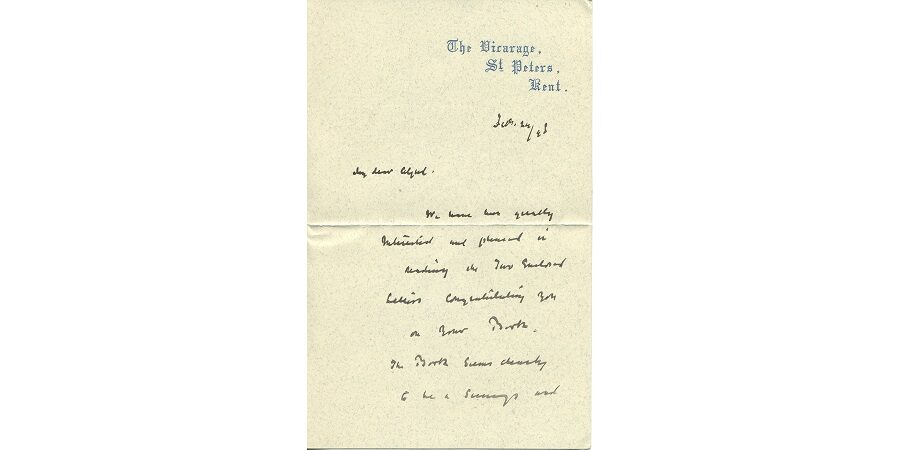 The Vicarage,
St Peters,
Kent.
My dear
We have been greatly
Interested and pleased in
reading the Two Enclosed
Letters Congratulating You
on Your Book.
The Book Seems clearly
to be a Success and